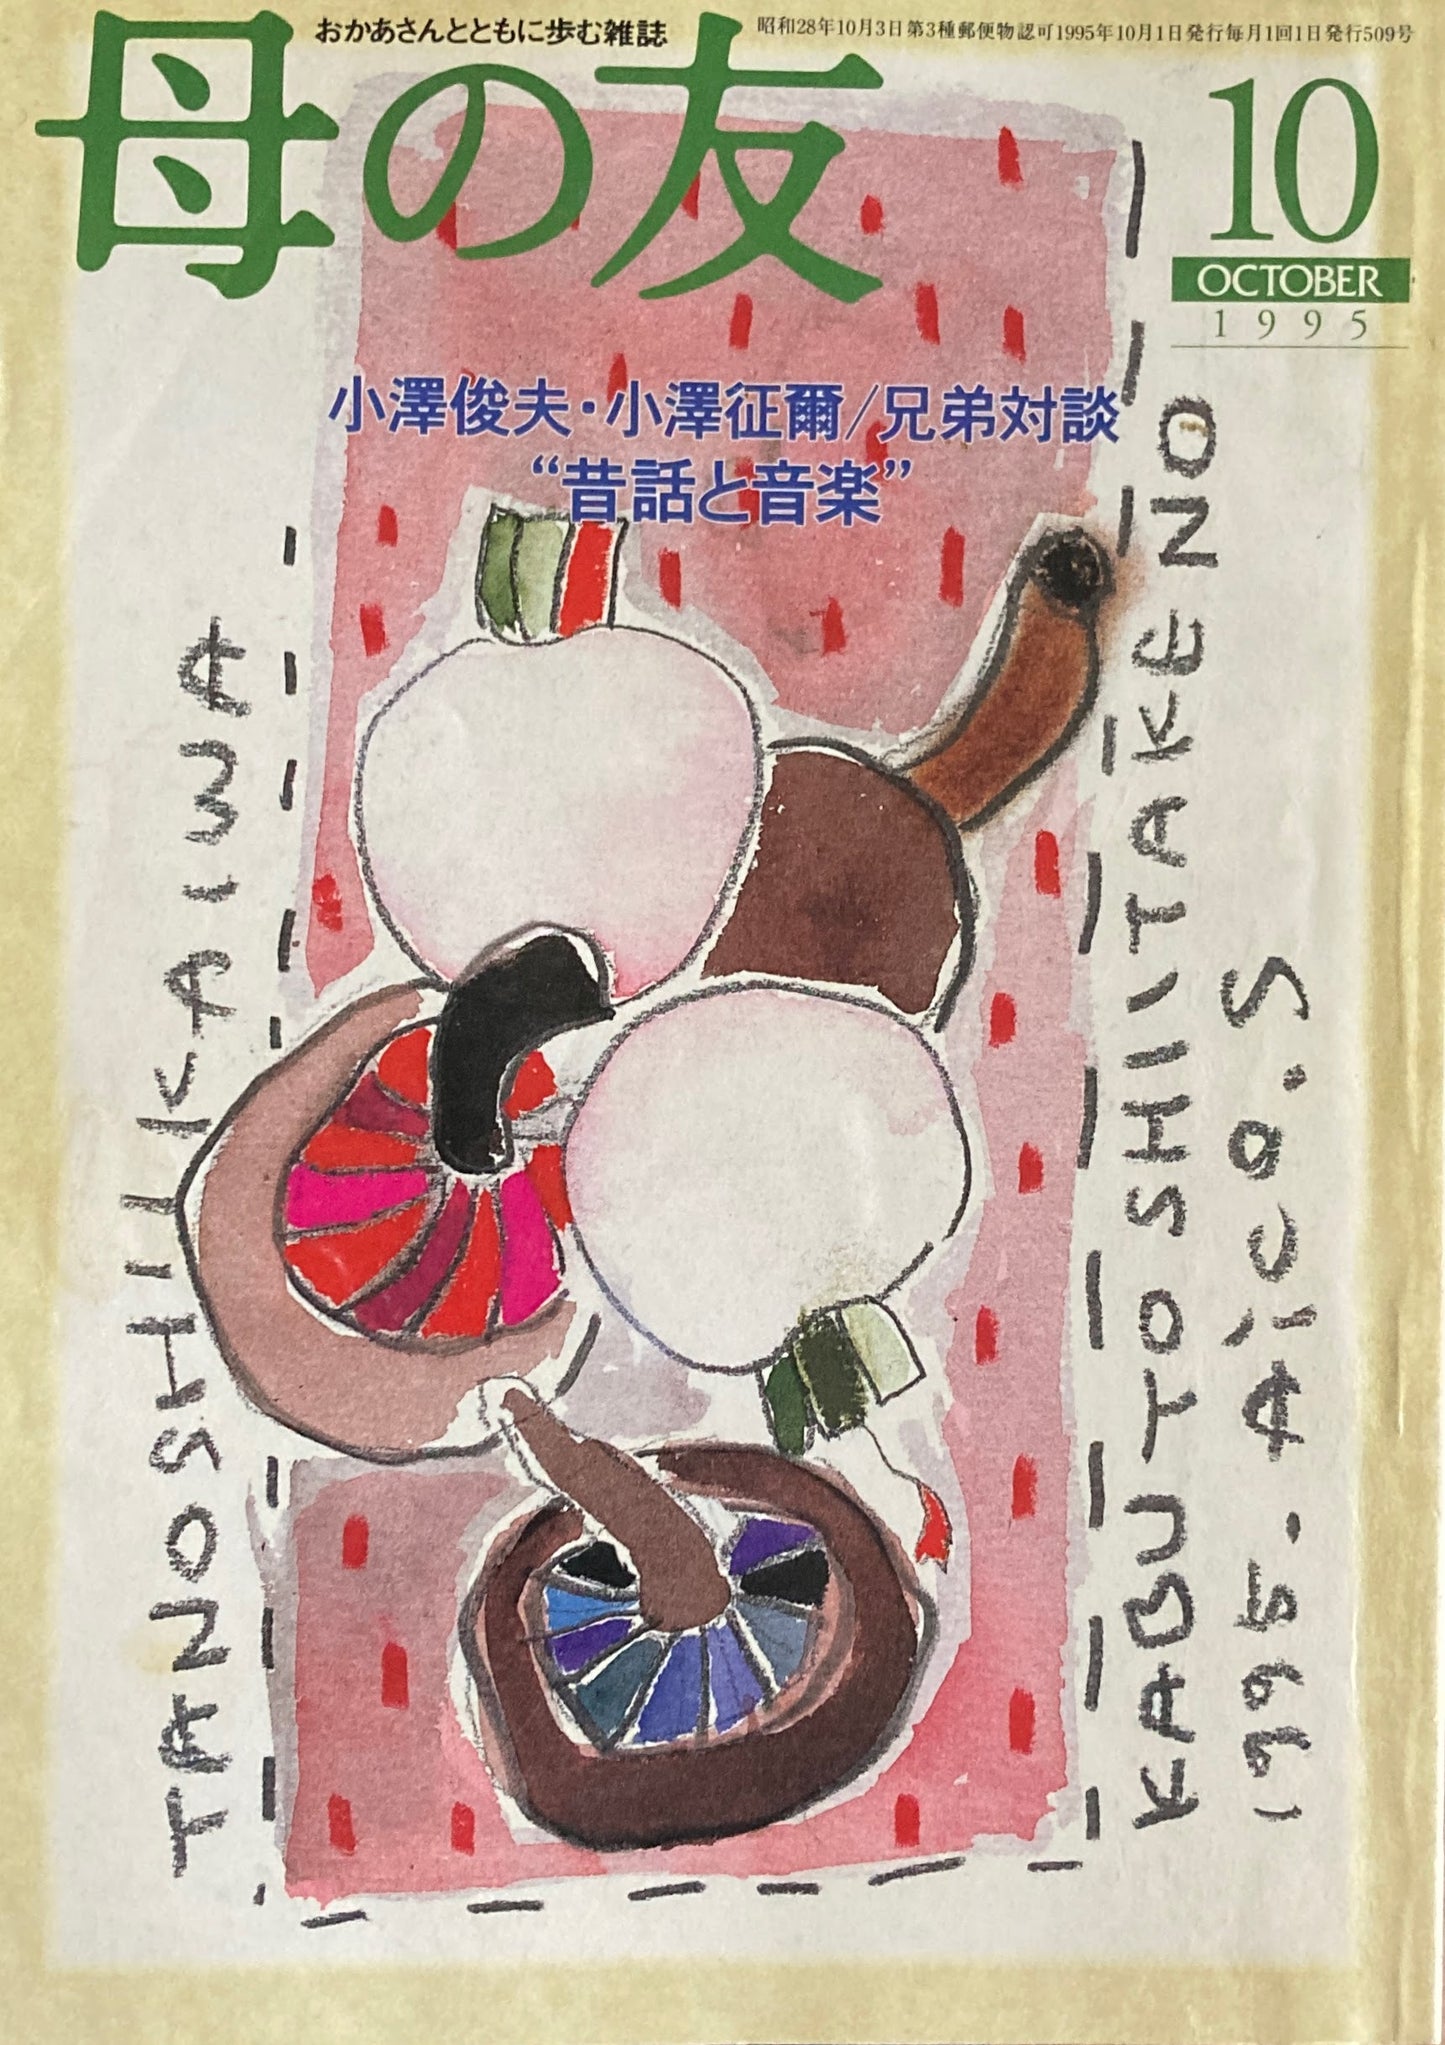 おかあさんとともに歩む雑誌
昭和28年10月3日第3種郵便物認可1995年10月1日発行毎月1回1日発行509号
母の友
10
OCTOBER
1995
小澤俊夫・小澤征爾/兄弟対談
“昔話と音楽”
KABUTOSHIITAKENO
TANOSHIIKAIWA